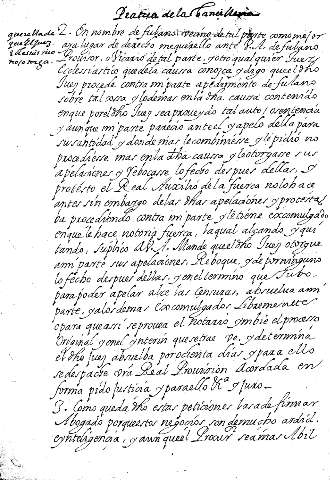 Pratica de la Chancilleria
querella de
que el juez
eclesiastico
no otorga.
2. En nombre de fulano vecino de tal parte como mejor
aya lugar de derecho me querello ante V. A. de fulano
Provisor, o Vicario de tal parte, y otro qualquier Juez
Eclesiastico que de la causa conozca y digo que el dho
Juez procede contra mi parte a pedimento de fulano
sobre tal cosa, y lo demas en la dha causa contenido
en que por el dho Juez se a proveydo tal auto, o sentencia
y aunque mi parte parecio ante el, y apelo della para
su santidad, y donde mas le combiniesse, y le pidio no
procediesse mas en la dha causa, y le otorgase sus
apelaciones, y rebocase lo fecho despues dellas, y
protesto el Real Auxilio de la fuerca no lo hace
antes sin embargo de las dhas apelaciones, y protestas
ba procediendo contra mi parte, y le tiene excomulgado
en que le hace notoria fuerca, la qual alçando, y qui
tando, Suplico a V. A. Mande que el dho Juez otorgue
a mi parte sus apelaciones, Reboque, y de por ninguno
lo fecho despues dellas, y en el termino que tubo
para poder apelar alce las censuras, absuelva a mi
parte, y a los demas Excomulgados Libremente
o para que assi se provea el Notario ymbie el proceso
Original y en el ynterin que se trae, ve, y determina
el dho Juez absuelba por ochenta dias, y para ello
se despache vra Real Provision Acordada en
forma pido Justicia y para ello &a y Juro.
3. Como queda dho estas peticiones las a de firmar
Abogado porque estos negocios son de mucho ardid.
e yntelligencia, y aunque el Procur sea mas Abil